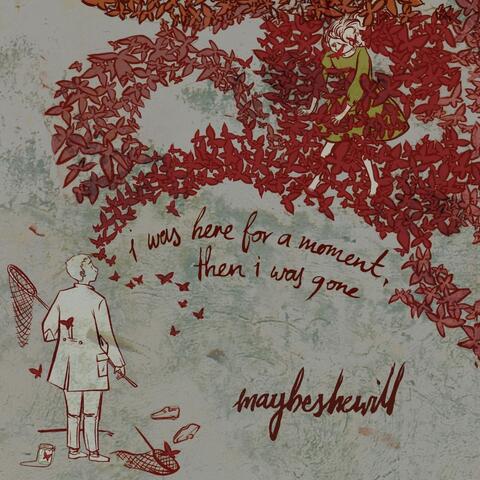 i was here for a moment,
then i was gone
maybeshewill